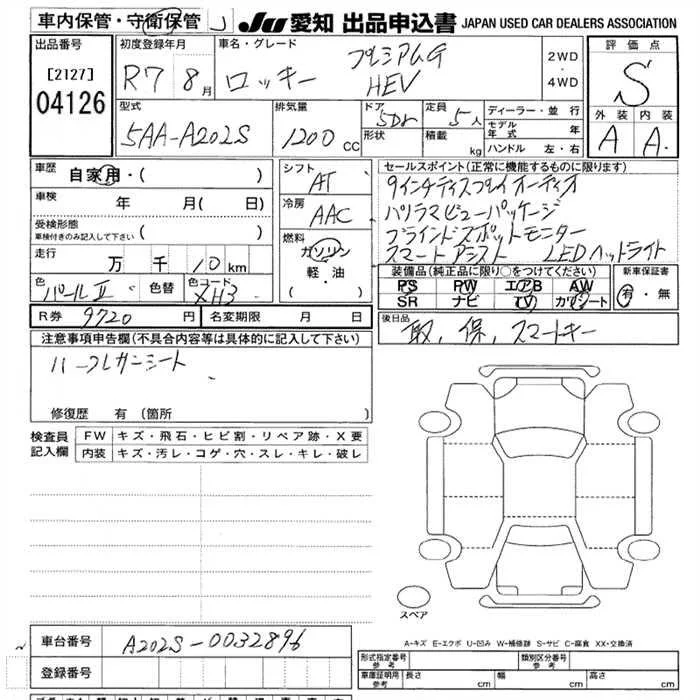 車内保管・守衛保管
JU 愛知 出品申込書 JAPAN USED CAR DEALERS ASSOCIATION
出品番号
[2127]
04126
初度登録年月
R7 8月
車名・グレード
ロッキー
プレミアムG
HEV
2WD
・
4WD
評価点
S
外装 内装
A A.
型式
5AA-A202S
排気量
1200 cc
ドア
5Dr
形状
定員
5人
積載
kg
ディーラー・並行
モデル年式 年
ハンドル 左・右
車歴
自家用・( )
車検 年 月( 日)
受検形態
車検付きのみ記入して下さい
走行 万 千 10 km
色 パールⅡ 色替 色コード XH3
R券 9720 円 名変期限 月 日
シフト
AT
冷房
AAC
燃料
ガソリン
軽・油
セールスポイント(正常に機能するものに限ります)
9インチディスプレイオーディオ
パノラマビューパッケージ
ブラインドスポットモニター
スマートアシスト LEDヘッドライト
装備品(純正品に限り○をつけてください)
PS PW エアB AW
SR ナビ TV カワシート
新車保証書
有・無
後日品
取, 保, スマートキー
注意事項申告欄(不具合内容等は具体的に記入して下さい)
ハーフレザーシート
修復歴 有(箇所 )
検査員記入欄
FW キズ・飛石・ヒビ割・リペア跡・X要
内装 キズ・汚レ・コゲ・穴・スレ・キレ・破レ
スペア
A-キズ E-エクボ U-凹み W-補修跡 S-サビ C-腐食 XX-交換済
車台番号 A202S-0032896
登録番号
形式指定番号 参考
類別区分番号 参考
車庫証明用 参考 長さ cm 幅 cm 高さ cm